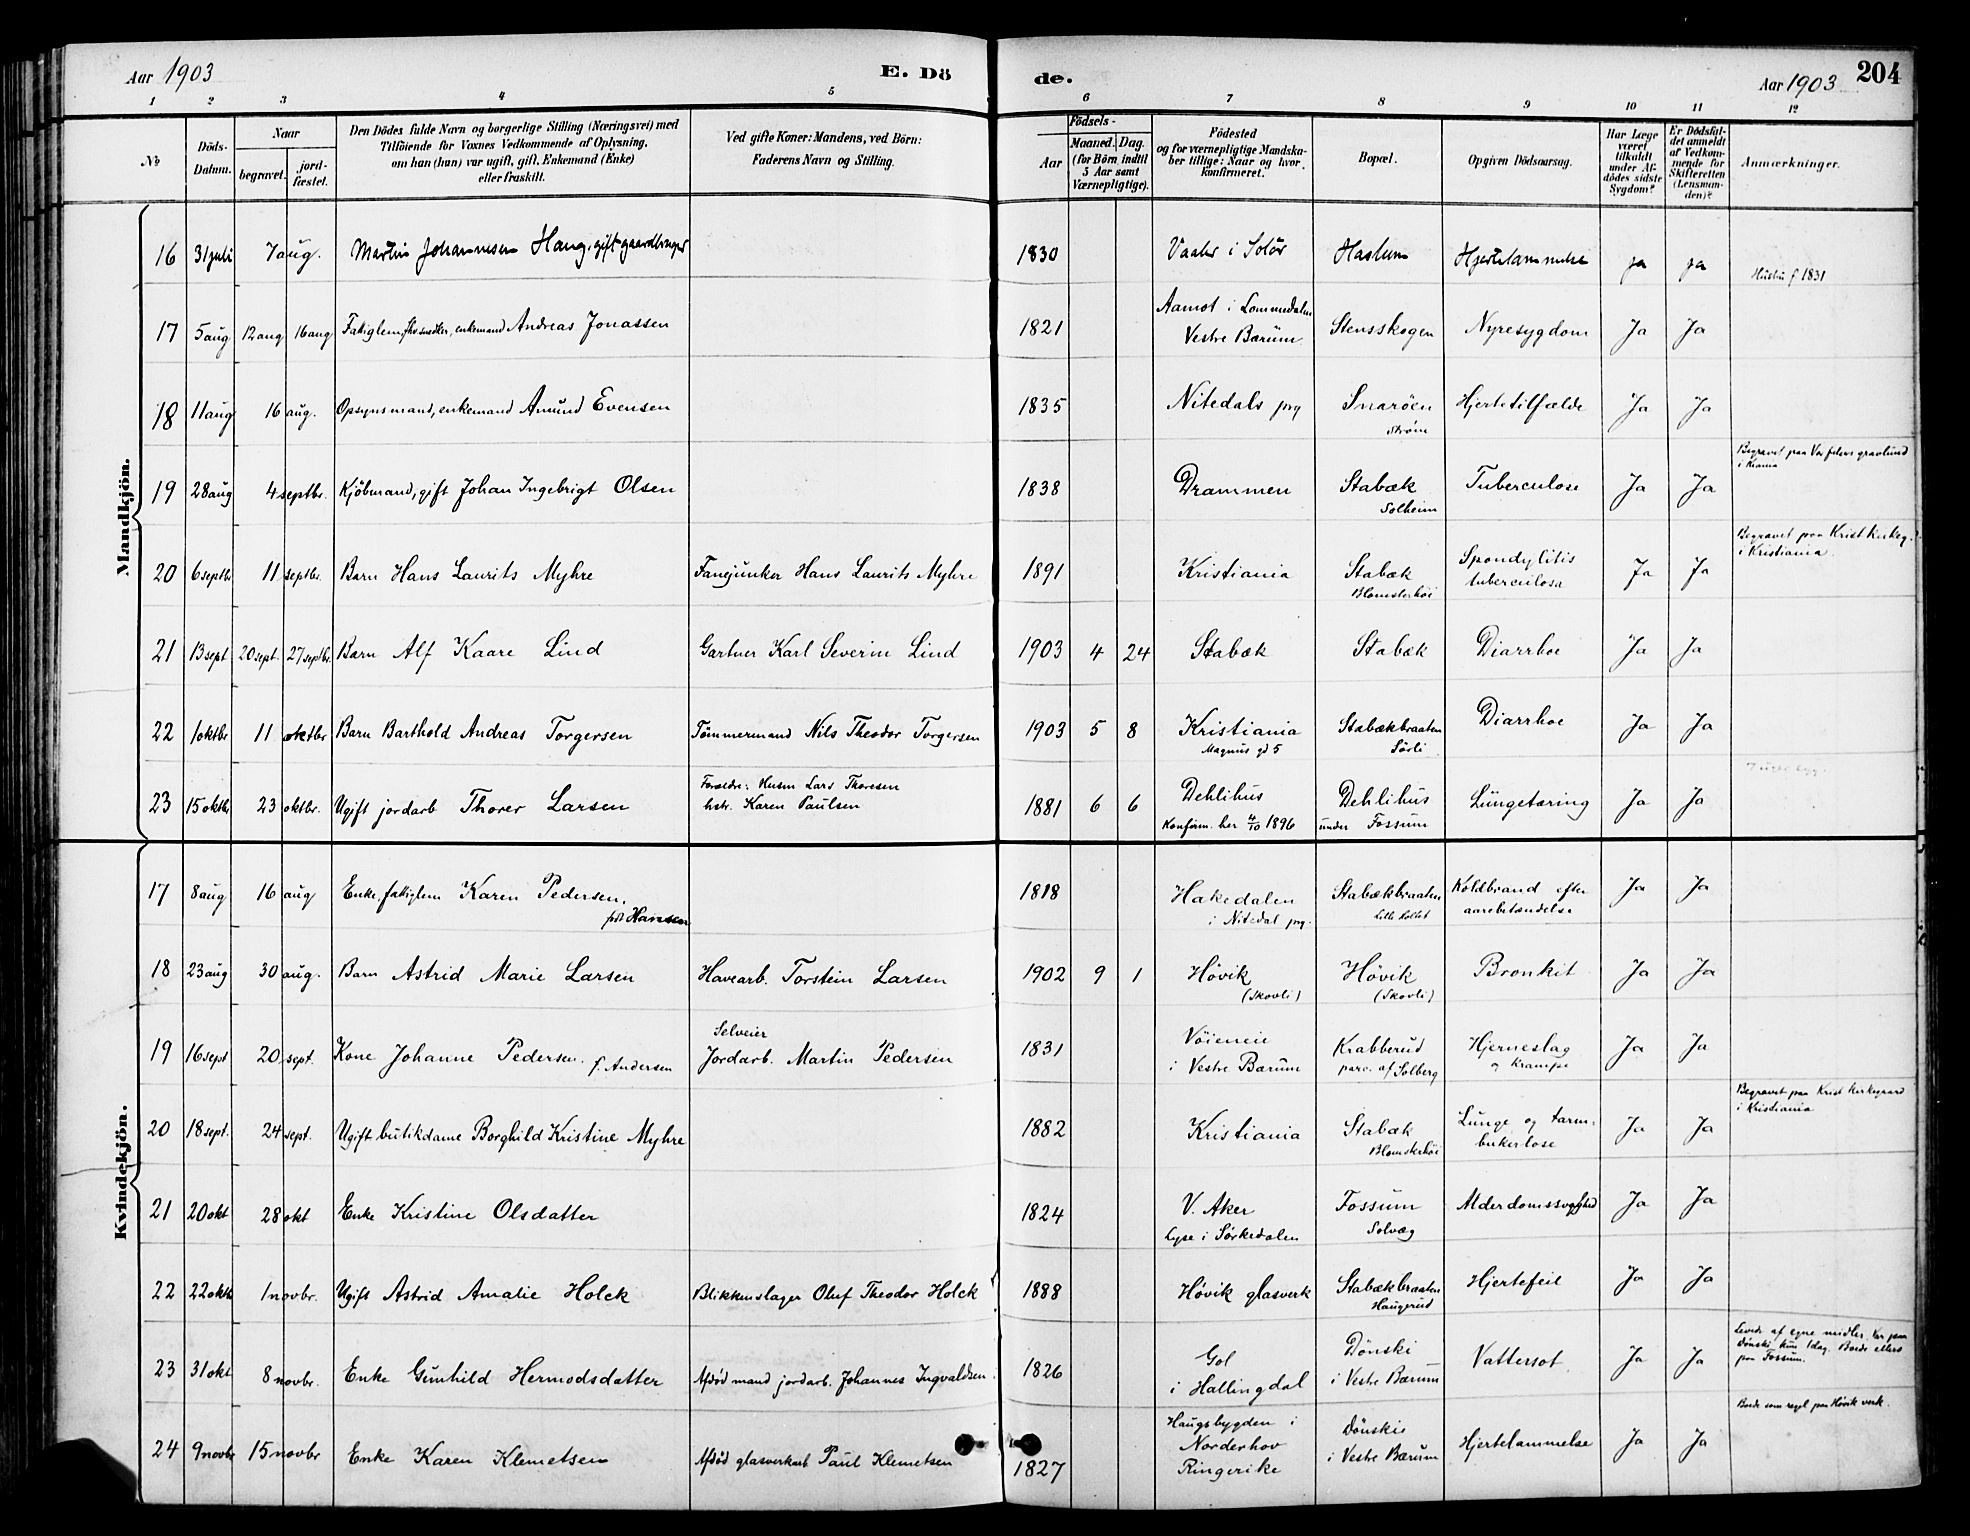 Aar 1903
E. Dö
de.
Aar 1903
204
1 2 3 4 5 6 7 8 9 10 11 12
No
Döds-Datum.
Naar
begravet.
jord-fæstet.
Den Dödes fulde Navn og borgerlige Stilling (Næringsvei) med
Tilföiende for Voxnes Vedkommende af Oplysning,
om han (hun) var ugift, gift, Enkemand (Enke)
eller fraskilt.
Ved gifte Koner: Mandens, ved Börn:
Faderens Navn og Stilling.
Födsels-
Aar
Maaned. Dag.
(for Börn indtil
5 Aar samt
Værnepligtige).
Födested
og for værnepligtige Mandska-
ber tillige: Naar og hvor
konfirmeret.
Bopæl.
Opgiven Dödsaarsag.
Har Læge
været
tilkaldt
under Af-
dödes sidste
Sygdom?
Er Dödsfal-
det anmeldt
af Vedkom-
mende for
Skifteretten
(Lensman-
den)?
Anmærkninger.
Mandkjön.
16 31 juli 7 aug. Martin Johannesen Haug, gift gaardbruger 1830 Vaaler i Solör Haslum Hjertelammelse ja ja
Hustru f. 1831
17 5 aug 12 aug 16 aug Fattiglem, skomaker, enkemand Andreas Jonassen 1821 Aamot i Lommedalen Stensskogen Nyresygdom Ja Ja
Vestre Bærum
18 11 aug 16 aug. Opsynsmand, enkemand Amund Evensen 1835 Nitedals prg Snaröen Hjertetilfælde Ja Ja
Ström
19 28 aug 4 septbr. Kjöbmand, gift Johan Ingebrigt Olsen 1838 Drammen Stabæk Tuberculose Ja Ja
Solheim
Begravet paa Vor frelsers gravlund
20 6 septbr 11 septbr. Barn Hans Laurits Myhre Fanejunker Hans Laurits Myhre 1891 Kristiania Stabæk Spondylitis Ja Ja
Blomsterhöi tuberculosa
Begravet paa Krist kirkeg.
i Kristiania.
21 13 sept 20 sept. 27 septbr. Barn Alf Kaare Lind Gartner Karl Severin Lind 1903 4 24 Stabæk Stabæk Diarrhoe Ja Ja
22 1 oktbr 11 oktbr Barn Barthold Andreas Torgersen Tömmermand Nils Theodor Torgersen 1903 5 8 Kristiania Stabækbraaten Diarrhoe Ja Ja
Magnus gd 5 Sörli
23 15 oktbr 23 oktbr. Ugift jordarb Thorer Larsen Forældre: Husm Lars Thoresen
hstr. Karen Paulsen 1881 6 6 Dehlihus Dehlihus Lungetæring Ja Ja
Konfirm. her 4/10 1896 under Fossum
Kvindekjön.
17 8 aug 16 aug Enke, fattiglem Karen Pedersen, 1818 Hakedalen Stabækbraaten Koldbrand efter Ja Ja
födt Hansen i Nitedal prg. Lille kollet aarebetændelse
18 23 aug 30 aug. Barn Astrid Marie Larsen Havearb. Torstein Larsen 1902 9 1 Hövik Hövik Bronkit Ja Ja
(Skovli) (Skovli)
19 16 sept 20 sept. Kone Johanne Pedersen. f. Andersen Selveier
Jordarb. Martin Pedersen 1831 Vöieneie Krabberud Hjerneslag Ja Ja
i Vestre Bærum parc. af Solberg og krampe
20 18 sept. 24 sept. Ugift butikdame Borghild Kristine Myhre 1882 Kristiania Stabæk Lunge og tarm- Ja Ja
Blomsterhöi tuberlose
Begravet paa Krist kirkegaard
i Kristiania
21 20 okt 28 okt Enke Kristine Olsdatter 1824 V. Aker Fossum Alderdomssvaghed Ja Ja
Lyse i Sörkedalen Solvæg
22 22 oktb 1 novbr. Ugift Astrid Amalie Holck Blikkenslager Oluf Theodor Holck 1888 Hövik glasverk Stabækbraaten Hjertefeil Ja Ja
Haugerud
23 31 okt 8 novbr. Enke Gunhild Hermodsdatter Afdöd mand jordarb. Johannes Ingvaldsen. 1826 Gol Dönski Vattersot Ja Ja
i Hallingdal i Vestre Bærum
Levede af egne midler. Var paa
Dönski kun 1 dag. Bode ellers
paa Fossum.
24 9 novbr 15 novbr Enke Karen Klemetsen Afdöd glasverkarb Paul Klemetsen 1827 Haugsbygden i Dönski Hjertelammelse Ja Ja
Norderhov i Vestre Bærum
Ringerike
Bode som regel paa Hövik verk.